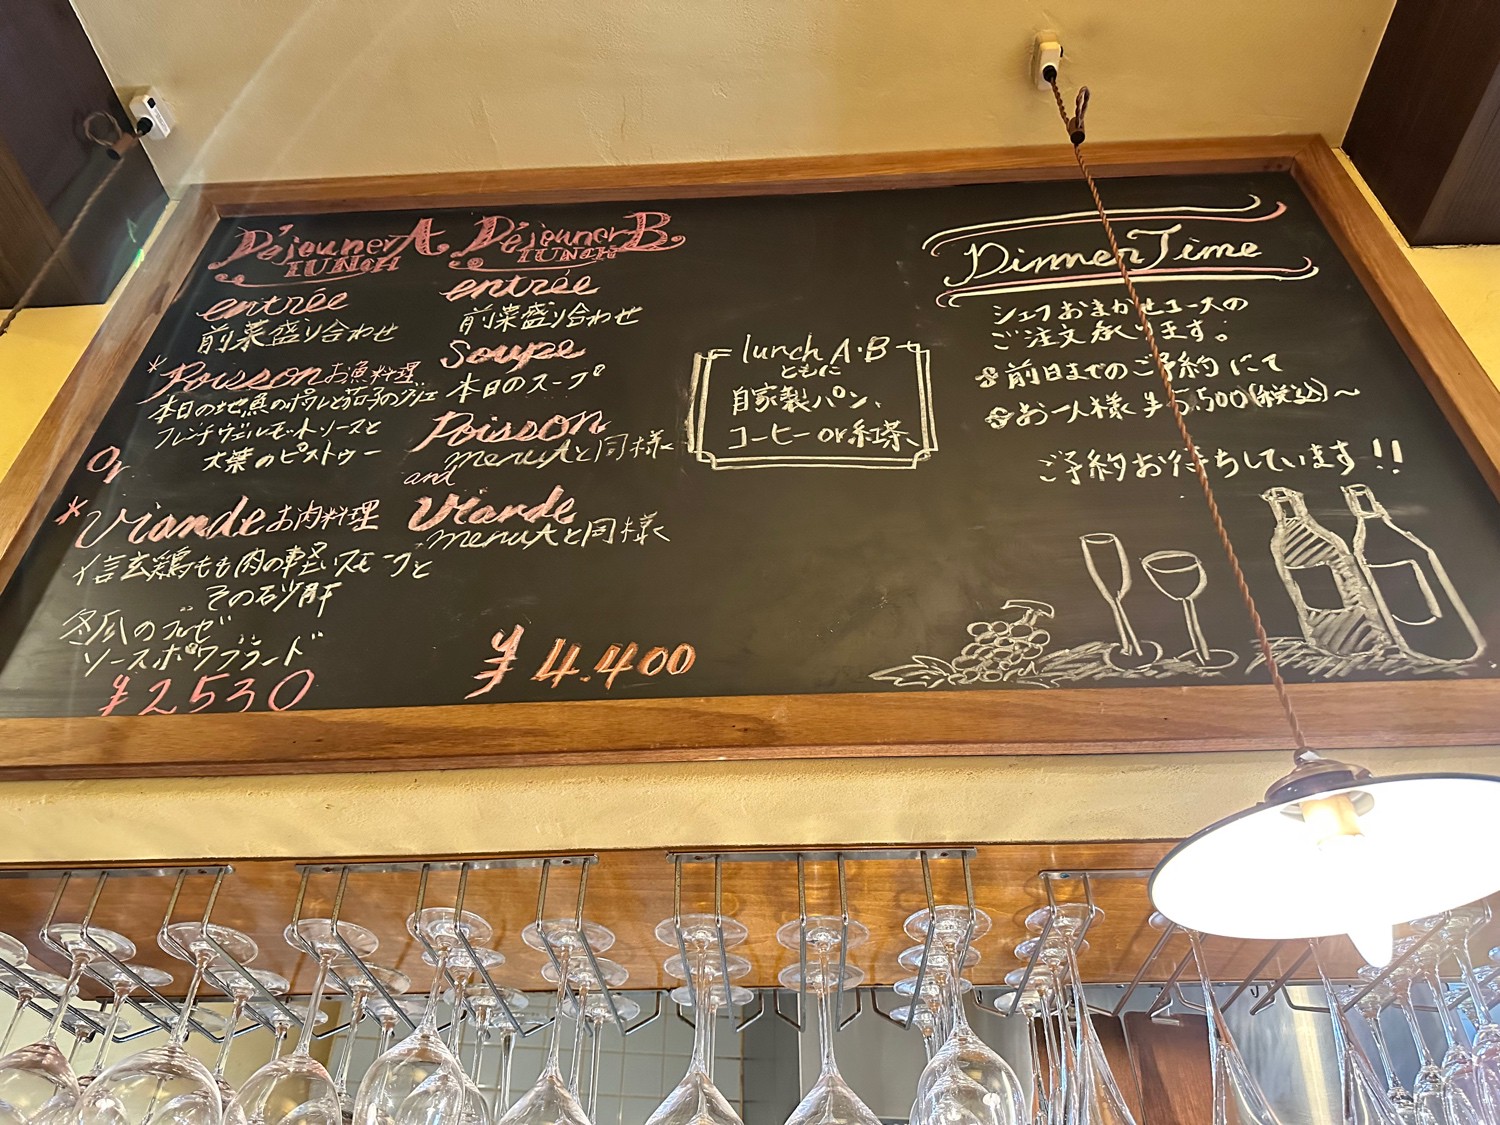 Déjeuner A
LUNCH
entrée
前菜盛り合わせ
*Poissonお魚料理
本日の地魚のポワレと茄子の
フレンチヴェルモットソースと
大葉のピストゥー
or
*Viandeお肉料理
信玄鶏もも肉の軽いスモークと
その砂肝
冬瓜の
ソースポワヴラード
¥2530
Déjeuner B
LUNCH
entrée
前菜盛り合わせ
Soupe
本日のスープ
Poisson
menuAと同様
and
Viande
menuAと同様
¥4.400
lunch A・B
ともに
自家製パン、
コーヒーor紅茶
Dinner Time
シェフおまかせコースの
ご注文承ります。
前日までのご予約にて
お一人様¥5,500(税込)〜
ご予約お待ちしています!!